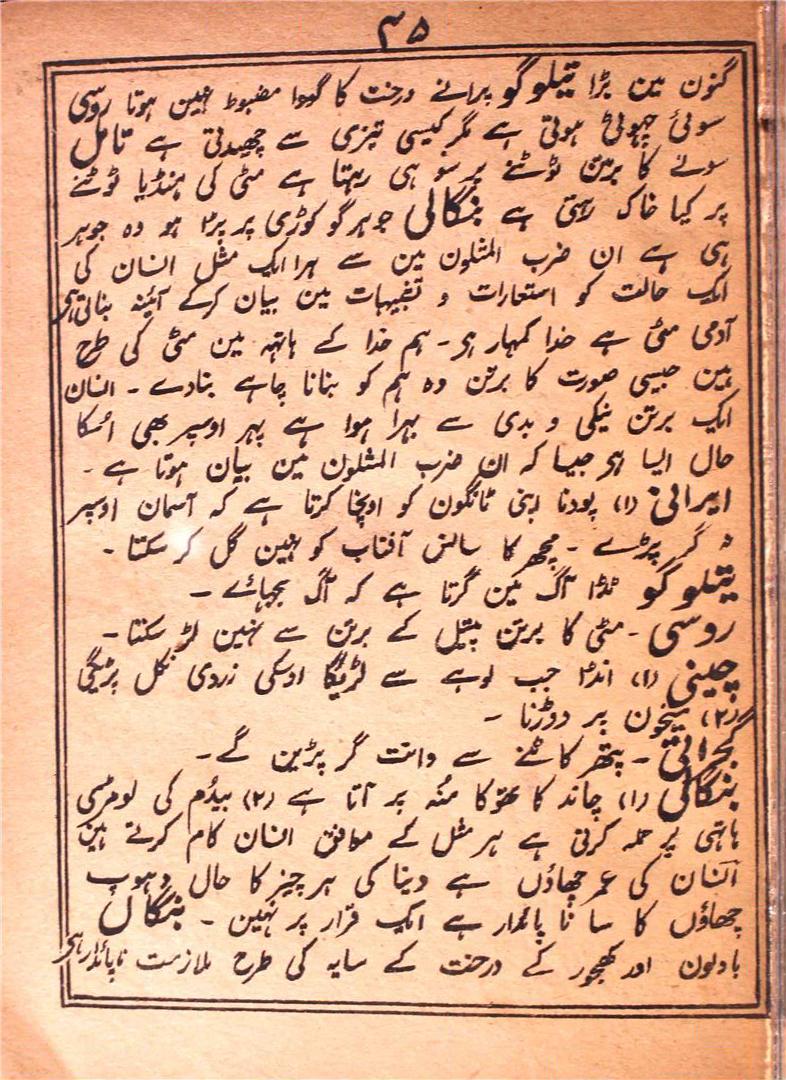 ۳۵
گنون مین بڑا تیلوگو پرانے درخت کا گودا مضبوط نہین ہوتا روسی
سوئی چھوٹی ہوتی ہے مگر کیسی تیزی سے چھیدتی ہے تامل
سونے کا برتن ٹوٹنے پر سو ہی رہتا ہے مٹی کی ہنڈیا ٹوٹنے
پر کیا خاک رہتی ہے بنگالی جوہر گو کوڑی پر پڑا ہو وہ جوہر
ہی ہے ان ضرب المثلون مین سے ہر ایک مثل انسان کی
ایک حالت کو استعارات و تشبیہات مین بیان کرکے آئینہ بناتی ہی
آدمی مٹی ہے خدا کمہار ہی ۔ ہم خدا کے ہاتہہ مین مٹی کی طرح
ہین جیسی صورت کا برتن وہ ہم کو بنانا چاہے بنادے ۔ انسان
ایک برتن نیکی و بدی سے بہرا ہوا ہے پہر اوسپر بھی اسکا
حال ایسا ہی جیسا کہ ان ضرب المثلون مین بیان ہوتا ہے ۔
ایرانی (۱) پودنا اپنی ٹانگون کو اونچا کرتا ہے کہ آسمان اوسپر
نہ گر پڑے ۔ مچھر کا سانس آفتاب کو نہین گل کر سکتا ۔
تیلوگو ٹڈا آگ مین گرتا ہے کہ آگ بجہائے ۔
روسی ۔ مٹی کا برتن پیتل کے برتن سے نہین لڑ سکتا ۔
چینی (۱) انڈا جب لوہے سے لڑیگا اوسکی زردی نکل پڑیگی
(۲) میخون پر دوڑنا ۔
گجراتی ۔ پتھر کاٹنے سے دانت گر پڑین گے ۔
بنگالی (۱) چاند کا تھوکا مُنہ پر آتا ہے (۲) بیدُم کی لومڑسی
ہاتہی پر حملہ کرتی ہے ہر مثل کے موافق انسان کام کرتے ہین
انسان کی عمر چھاؤں ہے دینا کی ہر چیز کا حال دہوپ
چھاؤں کا سا نا پائدار ہے ایک قرار پر نہین ۔ بنگال
بادلون اور کھجور کے درخت کے سایہ کی طرح ملازمت ناپائدار ہی